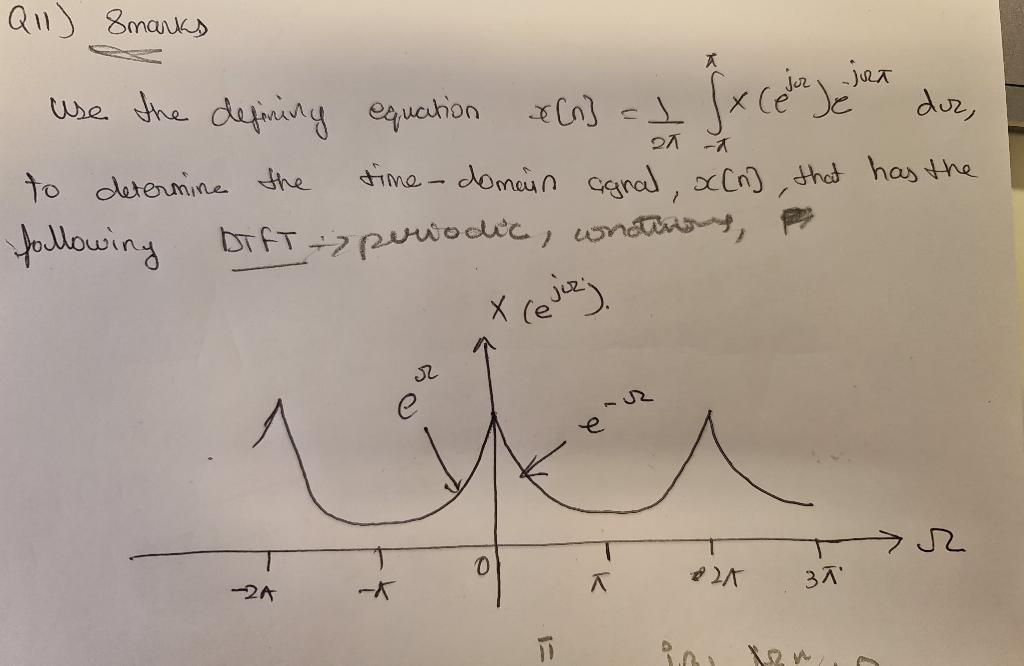 Q11) 8marks
use the defining equation x[n] = 1/2π ∫_{-π}^{π} X(e^{jΩ})e^{-jΩπ} dΩ,
to determine the time-domain signal, x[n], that has the
following DTFT -> periodic, continuous,
X(e^{jΩ}).
e^{Ω} e^{-Ω}
-2π -π 0 π 2π 3π Ω
π